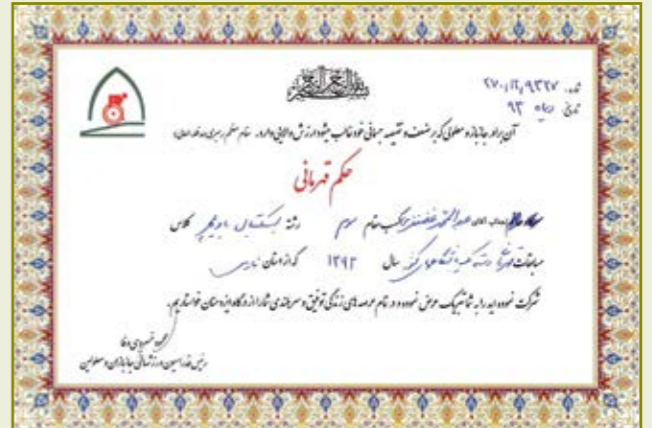 شماره: ۲۷۰/۱۲/۹۳۲۷
تاریخ: ۹۳
آن برادر جانباز و معلولی که بر ضعف و نقیصه جسمانی خود غالب میشود ارزش والایی دارد. مقام معظم رهبری
حکم قهرمانی
کسب مقام سوم رشته بسکتبال با ویلچر کلاس
مسابقات سال ۱۳۹۳ که از استان فارس
شرکت نموده اید را به شما تبریک عرض نموده و در تمام عرصه های زندگی توفیق و سربلندی شما را از درگاه ایزد منان خواستاریم.
محمود خسروی وفا
رئیس فدراسیون ورزشهای جانبازان و معلولین